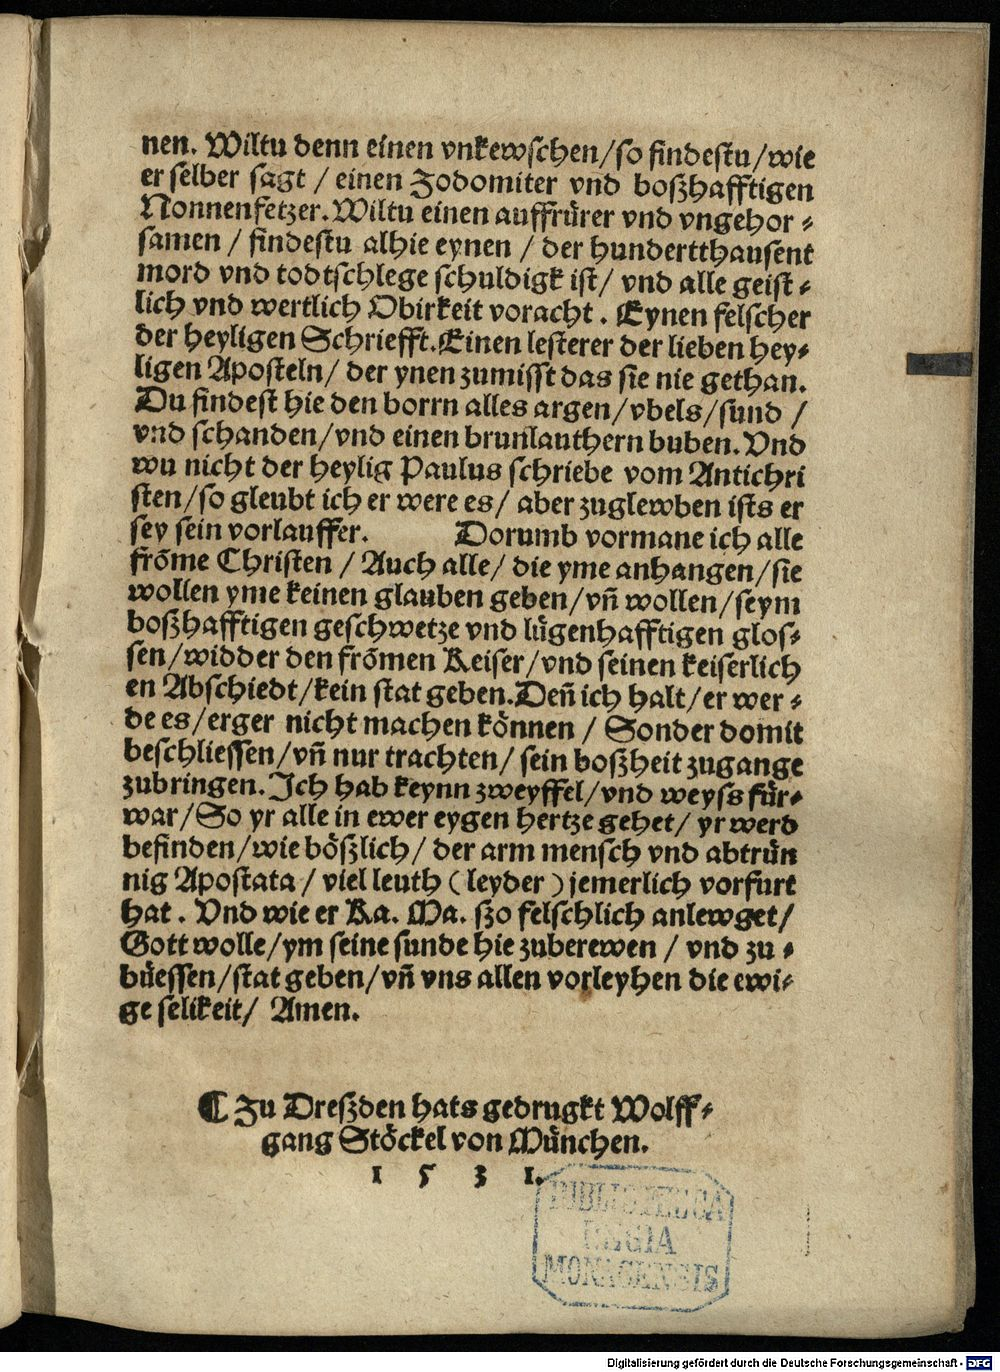 nen. Wiltu denn einen vnkewschen/so findestu/wie
er selber sagt / einen Zodomiter vnd boßhafftigen
Nonnenfetzer. Wiltu einen auffrürer vnd vngehor⸗
samen / findestu alhie eynen / der hundertthausent
mord vnd todtschlege schuldigk ist/ vnd alle geist⸗
lich vnd wertlich Obirkeit voracht. Eynen felscher
der heyligen Schriefft. Einen lesterer der lieben hey⸗
ligen Aposteln/ der ynen zumisst das sie nie gethan.
Du findest hie den borrn alles argen/vbels/sund /
vnd schanden/vnd einen brunlauthern buben. Vnd
wu nicht der heylig Paulus schriebe vom Antichri
sten/so gleubt ich er were es/ aber zuglewben ists er
sey sein vorlauffer. Dorumb vormane ich alle
frõme Christen / Auch alle/ die yme anhangen/sie
wollen yme keinen glauben geben/vñ wollen/seym
boßhafftigen geschwetze vnd lügenhafftigen glos⸗
sen/widder den frõmen Keiser/vnd seinen keiserlich
en Abschiedt/kein stat geben. Deñ ich halt/er wer⸗
de es/erger nicht machen können / Sonder domit
beschliessen/vñ nur trachten/ sein boßheit zugange
zubringen. Ich hab keynn zweyffel/vnd weyss für⸗
war/So yr alle in ewer eygen hertze gehet/ yr werd
befinden/wie bößlich/ der arm mensch vnd abtrün
nig Apostata / viel leuth (leyder) jemerlich vorfurt
hat. Vnd wie er Ka. Ma. ßo felschlich anlewget/
Gott wolle/ym seine sunde hie zuberewen / vnd zu⸗
büessen/stat geben/vñ vns allen vorleyhen die ewi⸗
ge selikeit/ Amen.
¶ Zu Dreßden hats gedrugkt Wolff⸗
gang Stöckel von München.
1 5 3 1.
BIBLIOTHECA
REGIA
MONACENSIS
Digitalisierung gefördert durch die Deutsche Forschungsgemeinschaft - DFG